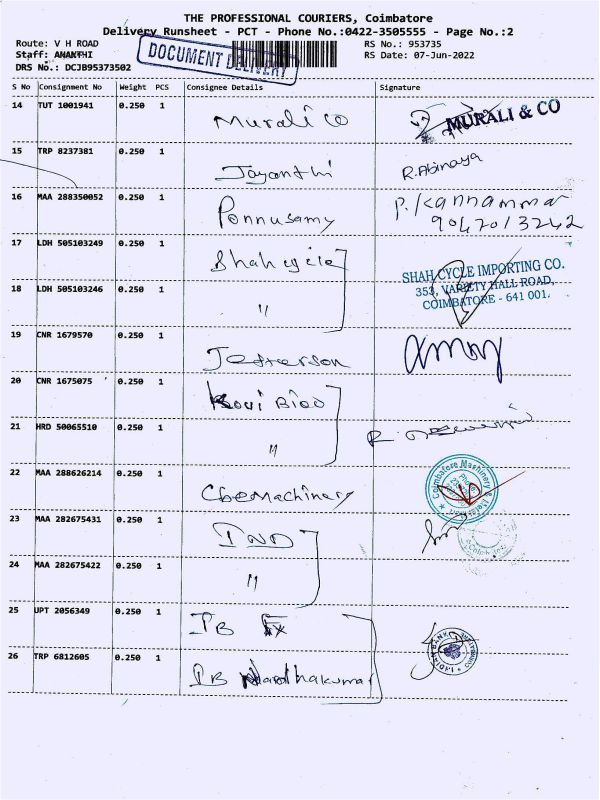 THE PROFESSIONAL COURIERS, Coimbatore
Delivery Runsheet - PCT - Phone No.:0422-3505555 - Page No.:2
Route: V H ROAD RS No.: 953735
Staff: ANANTHI RS Date: 07-Jun-2022
DRS No.: DCJB95373502
DOCUMENT DELIVERY
S No Consignment No Weight PCS Consignee Details Signature
14 TUT 1001941 0.250 1 Murali co MURALI & CO
15 TRP 8237381 0.250 1 Jayanthi R.Abinaya
16 MAA 288350052 0.250 1 Ponnusamy P. Kannammar
9047013242
17 LDH 505103249 0.250 1 Shah cycle SHAH CYCLE IMPORTING CO.
353, VARIETY HALL ROAD,
COIMBATORE - 641 001.
18 LDH 505103246 0.250 1 "
19 CNR 1679570 0.250 1 Jefferson
20 CNR 1675075 0.250 1 Kovi Bioo
21 HRD 50065510 0.250 1 " R.
22 MAA 288626214 0.250 1 CbeMachinery Coimbatore Machinery &
23 MAA 282675431 0.250 1 IND
24 MAA 282675422 0.250 1 "
25 UPT 2056349 0.250 1 IB INDIAN BANK
26 TRP 6812605 0.250 1 IB Nandhakumar